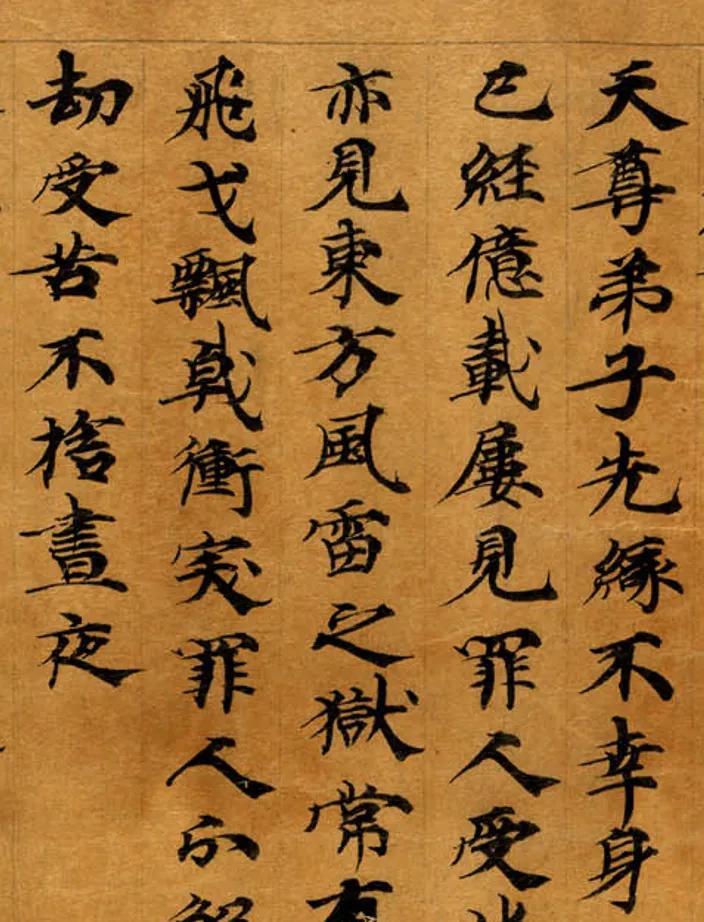 天尊弟子先緣不幸身
已經億載屢見罪人受
亦見東方風雷之獄常有
飛戈飄戟衝突罪人尒
劫受苦不捨晝夜